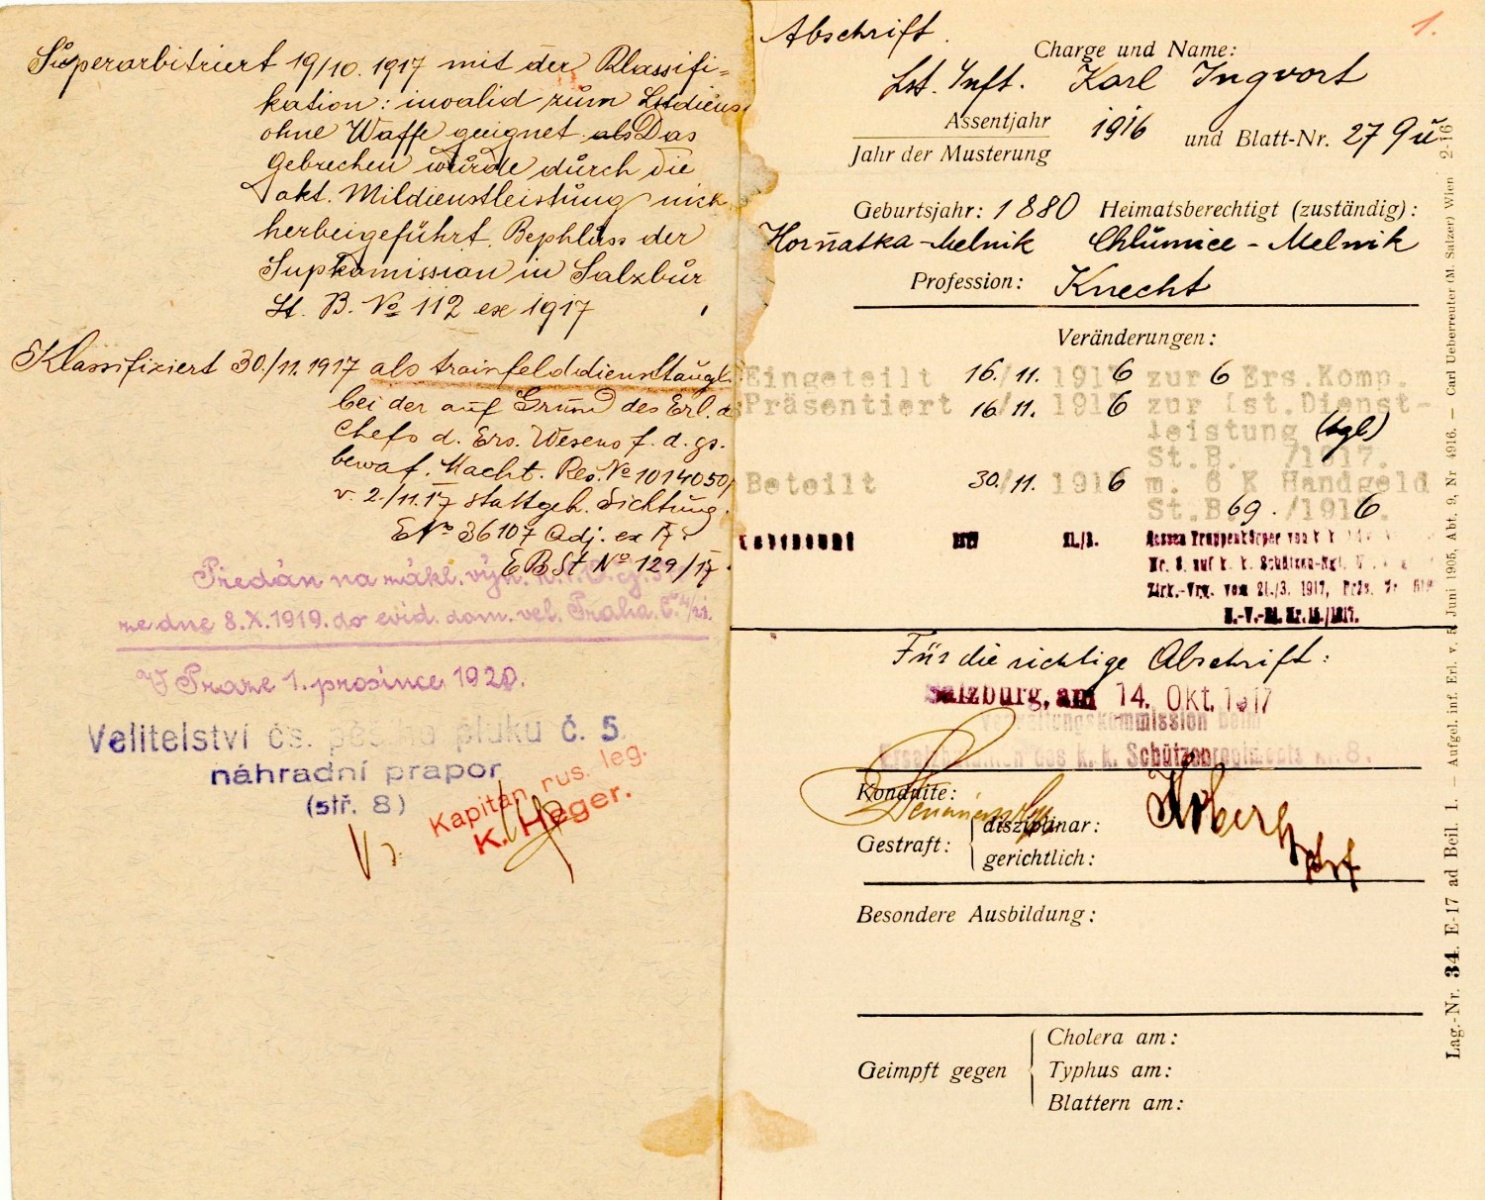 Superarbitriert 19/10. 1917 mit der Klassifi=
kation: invalid zum Lstdiens
ohne Waffe geeignet als Das
Gebrechen wurde durch die
akt. Mildienstleistung nich
herbeigeführt. Bephluss der
Supkomission in Salzbur
St. B. No 112 ex 1917
Klassifiziert 30./11. 1917 als trainfelddiensttaugl.
bei der auf Grund des Erl. d
Chefs d. Ers. Wesens f. d. gs.
bewaf. Macht. Res. No 1014050/
v. 2./11. 17 stattgeh. Sichtung.
E No 36107 Adj. ex 17.
E B St No 129/17.
Předán na zákl. výn.
ze dne 8.X.1919. do evid. dom. vel. Praha.
V Praze 1. prosince 1920.
Velitelství čs. pěšího pluku č. 5
náhradní prapor
(stř. 8)
Kapitán rus. leg.
K. Heger.
Abschrift.
1.
Charge und Name:
Lst. Inft. Karl Ingvort
Assentjahr
Jahr der Musterung
1916 und Blatt-Nr. 279
Geburtsjahr: 1880 Heimatsberechtigt (zuständig):
Hořnatka-Melnik Chlumice - Melnik
Profession: Knecht
Veränderungen:
Eingeteilt 16./11. 1916 zur 6 Ers.Komp.
Präsentiert 16/11. 1916 zur lst.Dienst-
leistung (tgl)
St.B. /1917.
Beteilt 30./11. 1916 m. 6 K Handgeld
St.B. 69. /1916.
1917 21./3.
Nr. 8, auf k. k. Schützen-Rgt.
Zirk.-Vrg. vom 21./3. 1917, Präs.
Für die richtige Abschrift:
Salzburg, am 14. Okt. 1917
Verwaltungskommission beim
Ersatzbataillon des k. k. Schützenregiments Nr. 8.
Konduite:
Gestraft:
disziplinar:
gerichtlich:
Besondere Ausbildung:
Geimpft gegen
Cholera am:
Typhus am:
Blattern am:
Lag.-Nr. 34. E-17 ad Beil. 1. — Aufgel. inf. Erl. v. 5. Juni 1905, Abt. 9, Nr 4916. — Carl Ueberreuter (M. Salzer) Wien 2-16